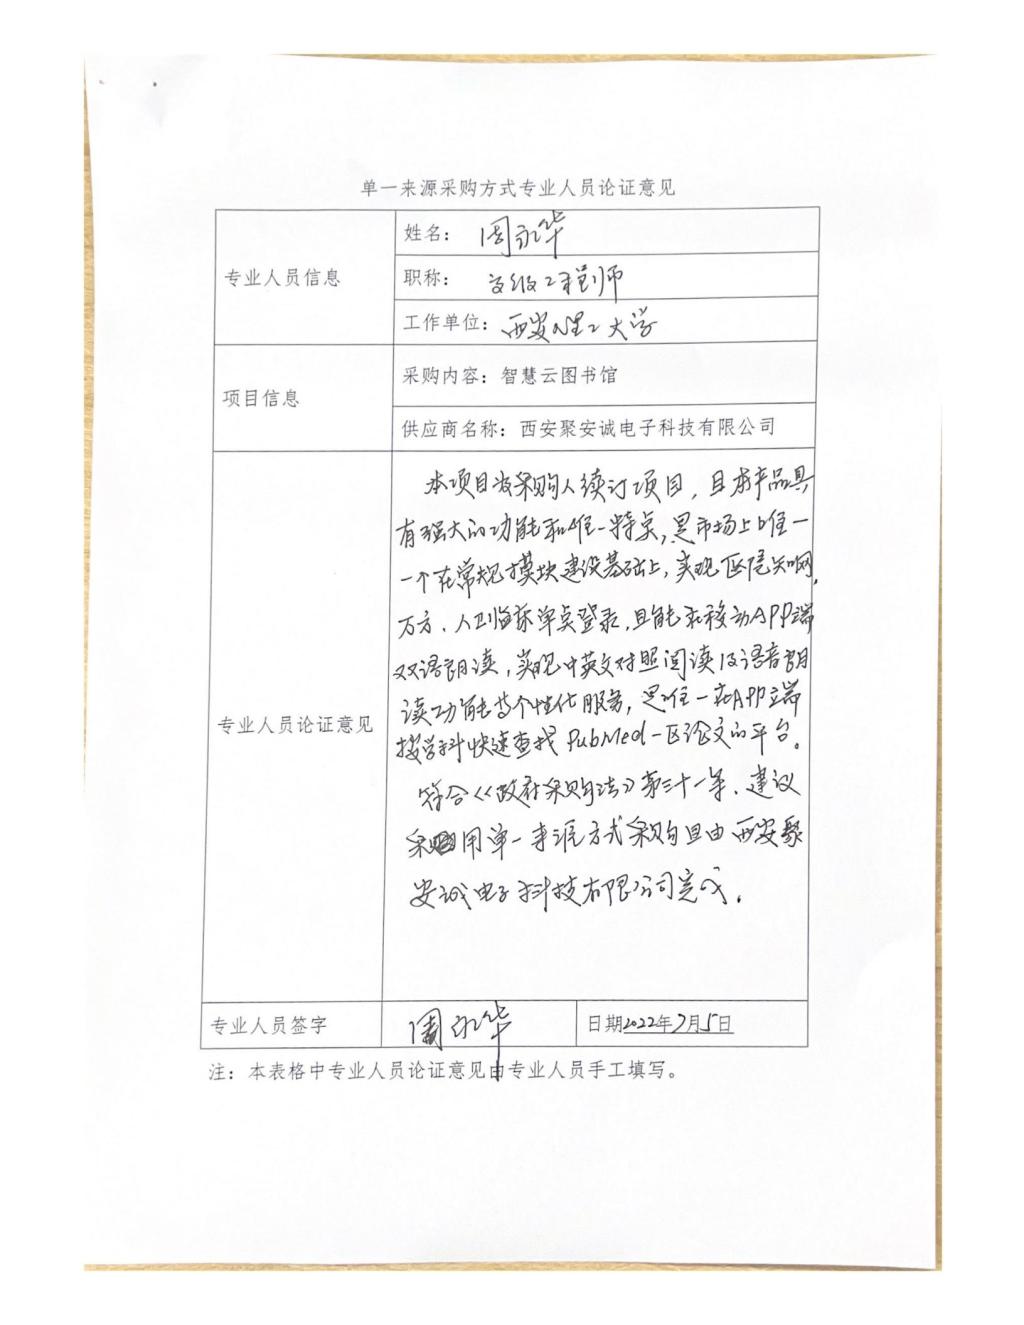 单一来源采购方式专业人员论证意见
专业人员信息
姓名： 周永华
职称： 高级工程师
工作单位：西安理工大学
项目信息
采购内容：智慧云图书馆
供应商名称：西安聚安诚电子科技有限公司
专业人员论证意见
本项目为采购人续订项目，且本产品具
有强大的功能和唯一特点，是市场上唯一
一个在常规模块建设基础上，实现医院知网，
万方、人卫临床单点登录，且能在移动APP端
双语朗读，实现中英文对照阅读及语音朗
读功能等个性化服务，是唯一在APP端
按学科快速查找PubMed-医论文的平台。
符合《政府采购法》第三十一条，建议
采用单一来源方式采购且由西安聚
安诚电子科技有限公司完成。
专业人员签字
周永华
日期2022年7月5日
注：本表格中专业人员论证意见由专业人员手工填写。